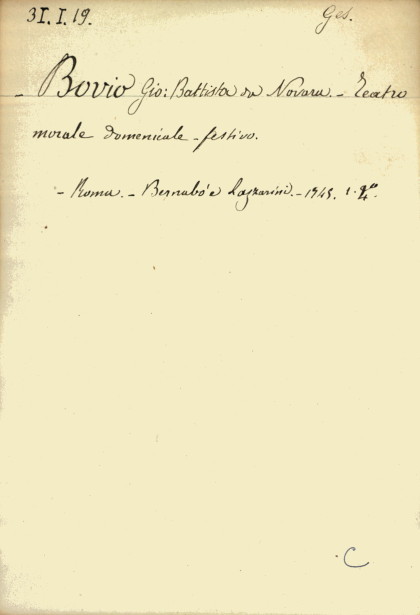 31.I.19. Ges.
- Bovio Gio: Battista da Novara. - Teatro
morale domenicale - festivo.
- Roma. - Bernabó e Lazzarini. - 1749. t. 4.º
C